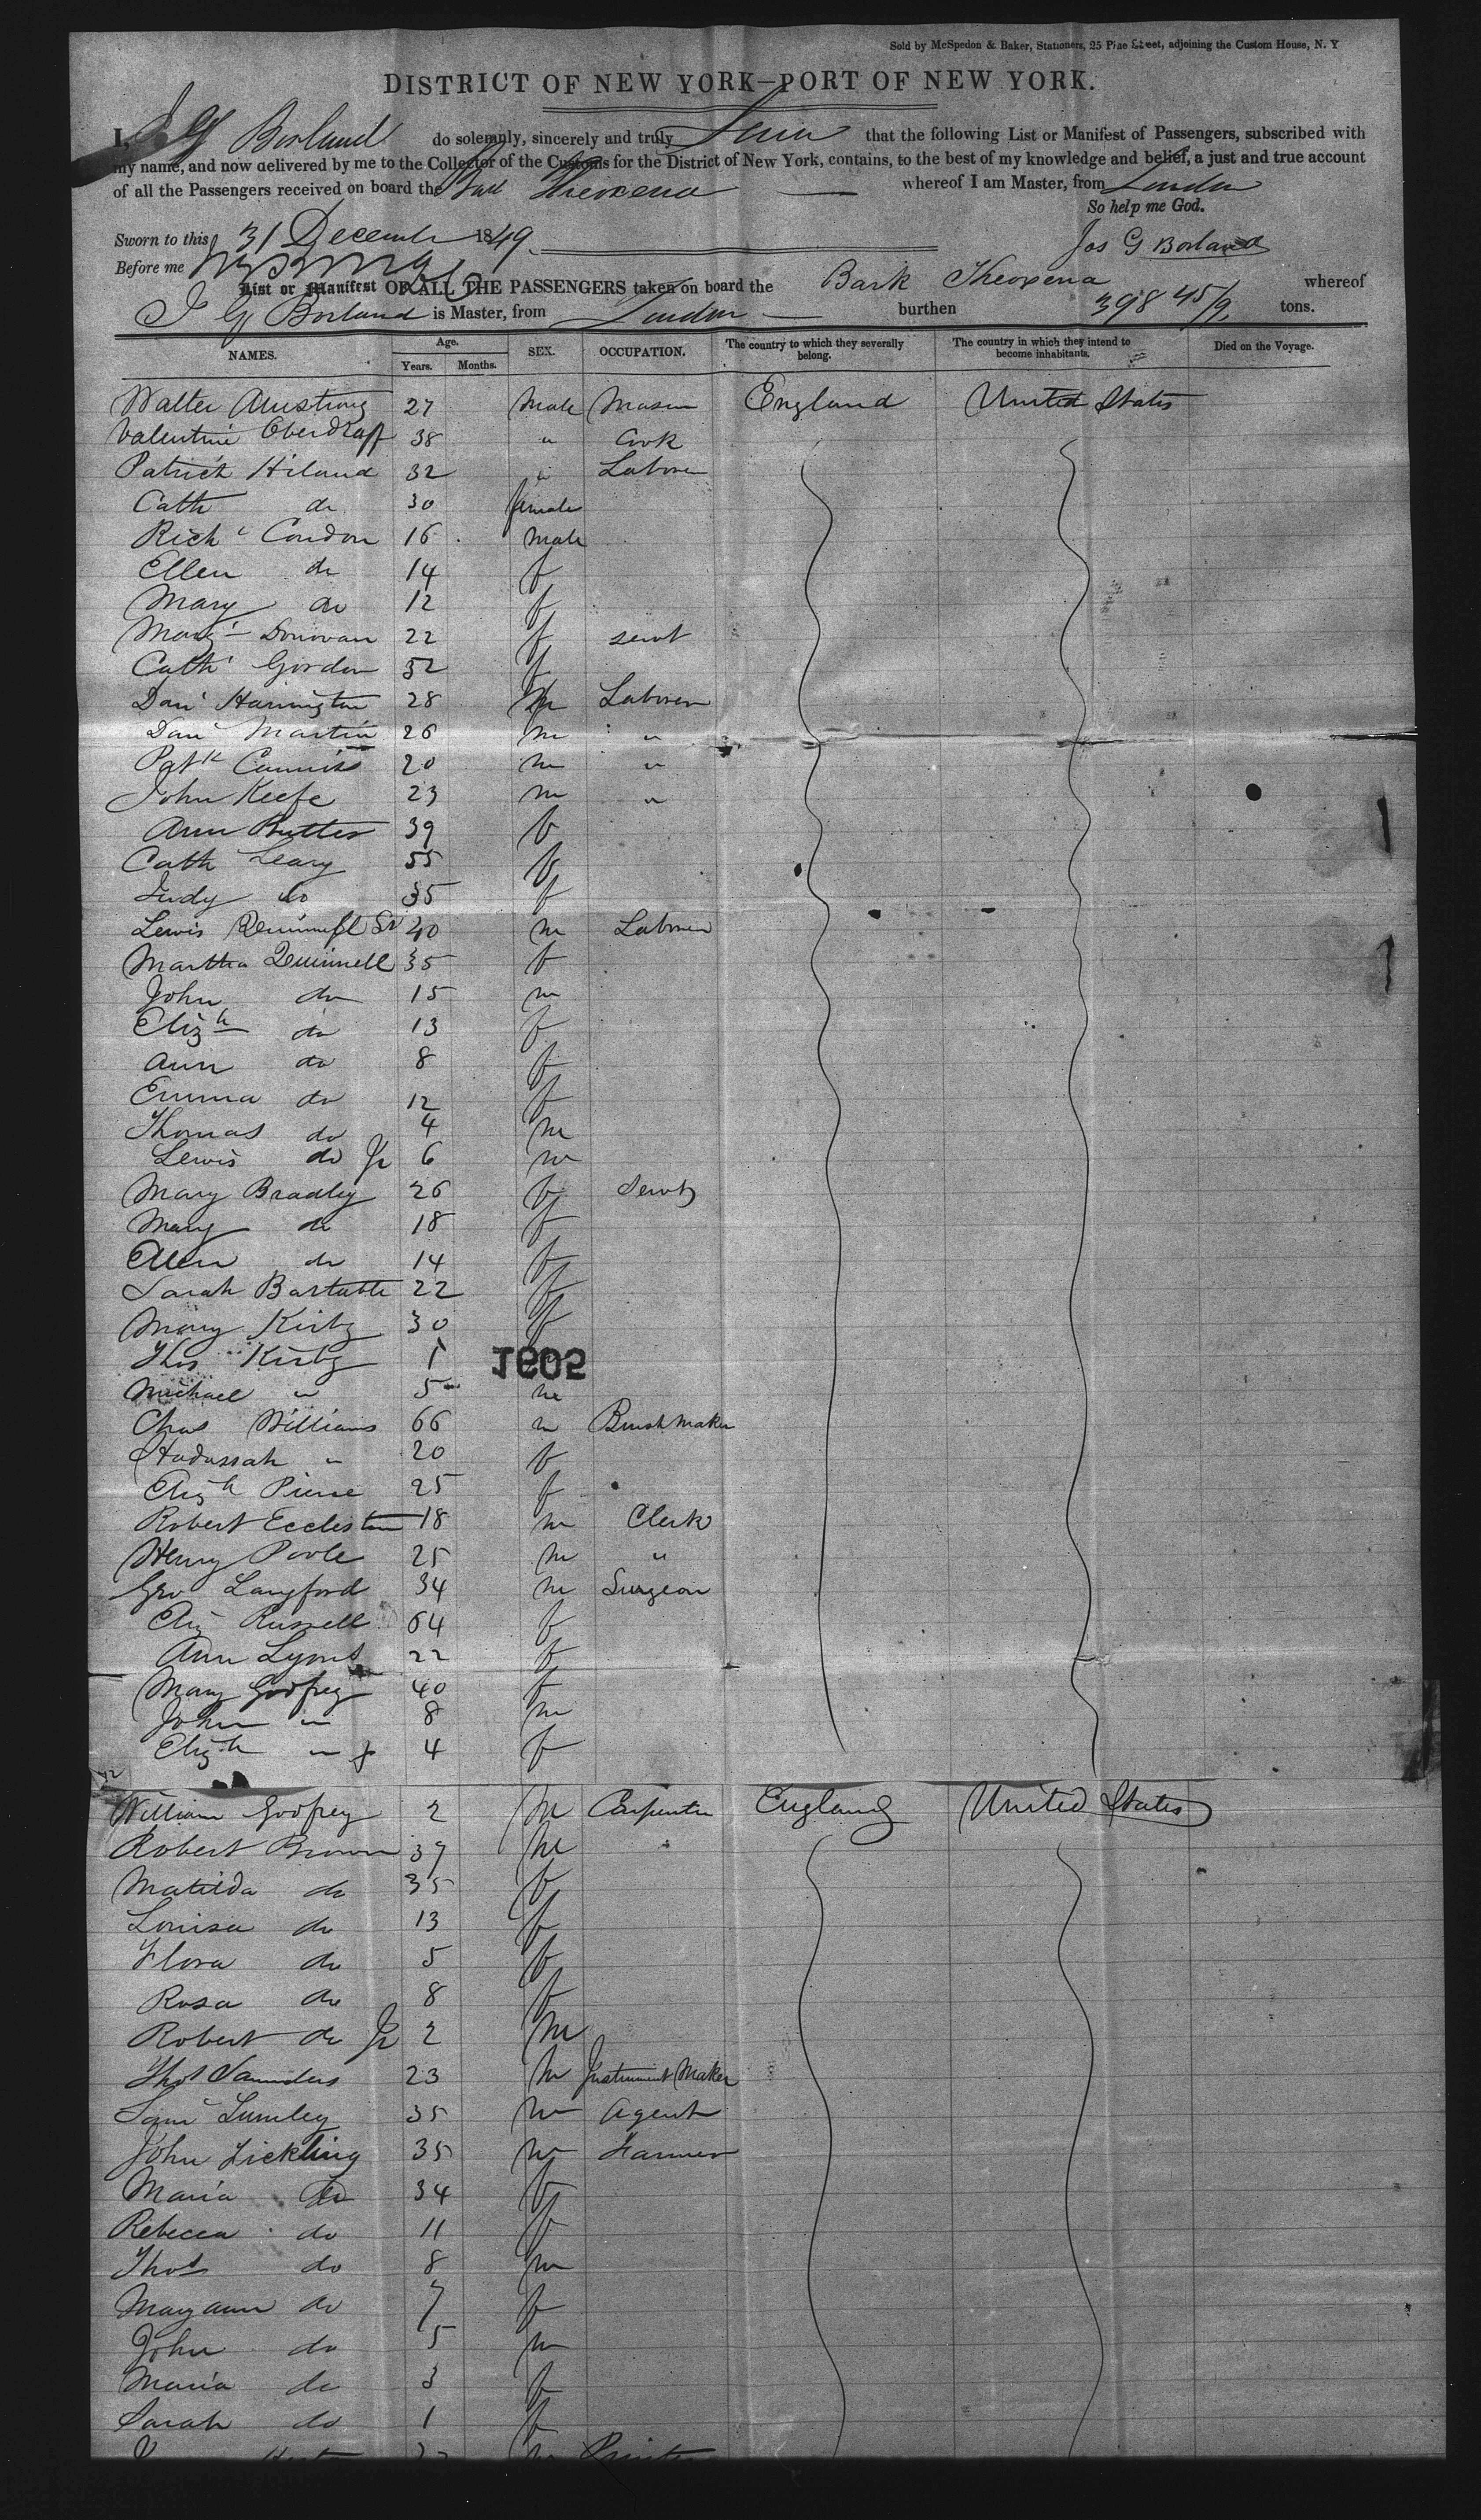 Sold by McSpedon & Baker, Stationers, 25 Pine Street, adjoining the Custom House, N. Y
DISTRICT OF NEW YORK—PORT OF NEW YORK.
I, J G Borland do solemnly, sincerely and truly Swear that the following List or Manifest of Passengers, subscribed with
my name, and now delivered by me to the Collector of the Customs for the District of New York, contains, to the best of my knowledge and belief, a just and true account
of all the Passengers received on board the Bark Theoxena whereof I am Master, from London
So help me God.
Sworn to this 31 December 1849.
Jos G Borland
Before me
List or Manifest OF ALL THE PASSENGERS taken on board the Bark Theoxena whereof
J G Borland is Master, from London burthen 398 45/9 tons.
NAMES. Age. Years. Months. SEX. OCCUPATION. The country to which they severally belong. The country in which they intend to become inhabitants. Died on the Voyage.
Walter Armstrong 27 Male Mason England United States
Valentine Oberdraff 38 " Cook
Patrick Hiland 32 " Laborer
Cath do 30 female
Rich Condon 16 male
Ellen do 14 f
Mary do 12 f
Mary Donovan 22 f servt
Cath Gordon 32 f
Dan Harrington 28 m Laborer
Dan Martin 26 m "
Patk 20 m "
John Keefe 23 m "
Ann Butter 39 f
Cath Leary 55 f
Judy do 35 f
Lewis Quinnell Sr 40 m Laborer
Martha Quinnell 35 f
John do 15 m
Elizh do 13 f
Ann do 8 f
Emma do 12 f
Thomas do 4 m
Lewis do Jr 6 m
Mary Bradley 26 f Servt
Mary do 18 f
Ellen do 14 f
Sarah Bartable 22 f
Mary Kirby 30 f
Thos Kirby 1
1602
Michael " 5 m
Chas Williams 66 m Brush Maker
Hadassah " 20 f
Elizh Pierce 25 f
Robert Eccleston 18 m Clerk
Henry Poole 25 m "
Geo Langford 34 m Surgeon
Eliz Russell 64 f
Ann Lyons 22 f
Mary Godfrey 40 f
John " 8 m
Elizh " 4 f
William Godfrey 2 m Carpenter England United States
Robert Brown 39 m
Matilda do 35 f
Louisa do 13 f
Flora do 5 f
Rosa do 8 f
Robert do Jr 2 m
Thos Saunders 23 m Instrument Maker
Saml Lumley 35 m Agent
John Lickling 35 m Farmer
Maria do 34 f
Rebecca do 11 f
Thos do 8 m
Mary ann do 7 f
John do 5 m
Maria do 3 f
Sarah do 1 f